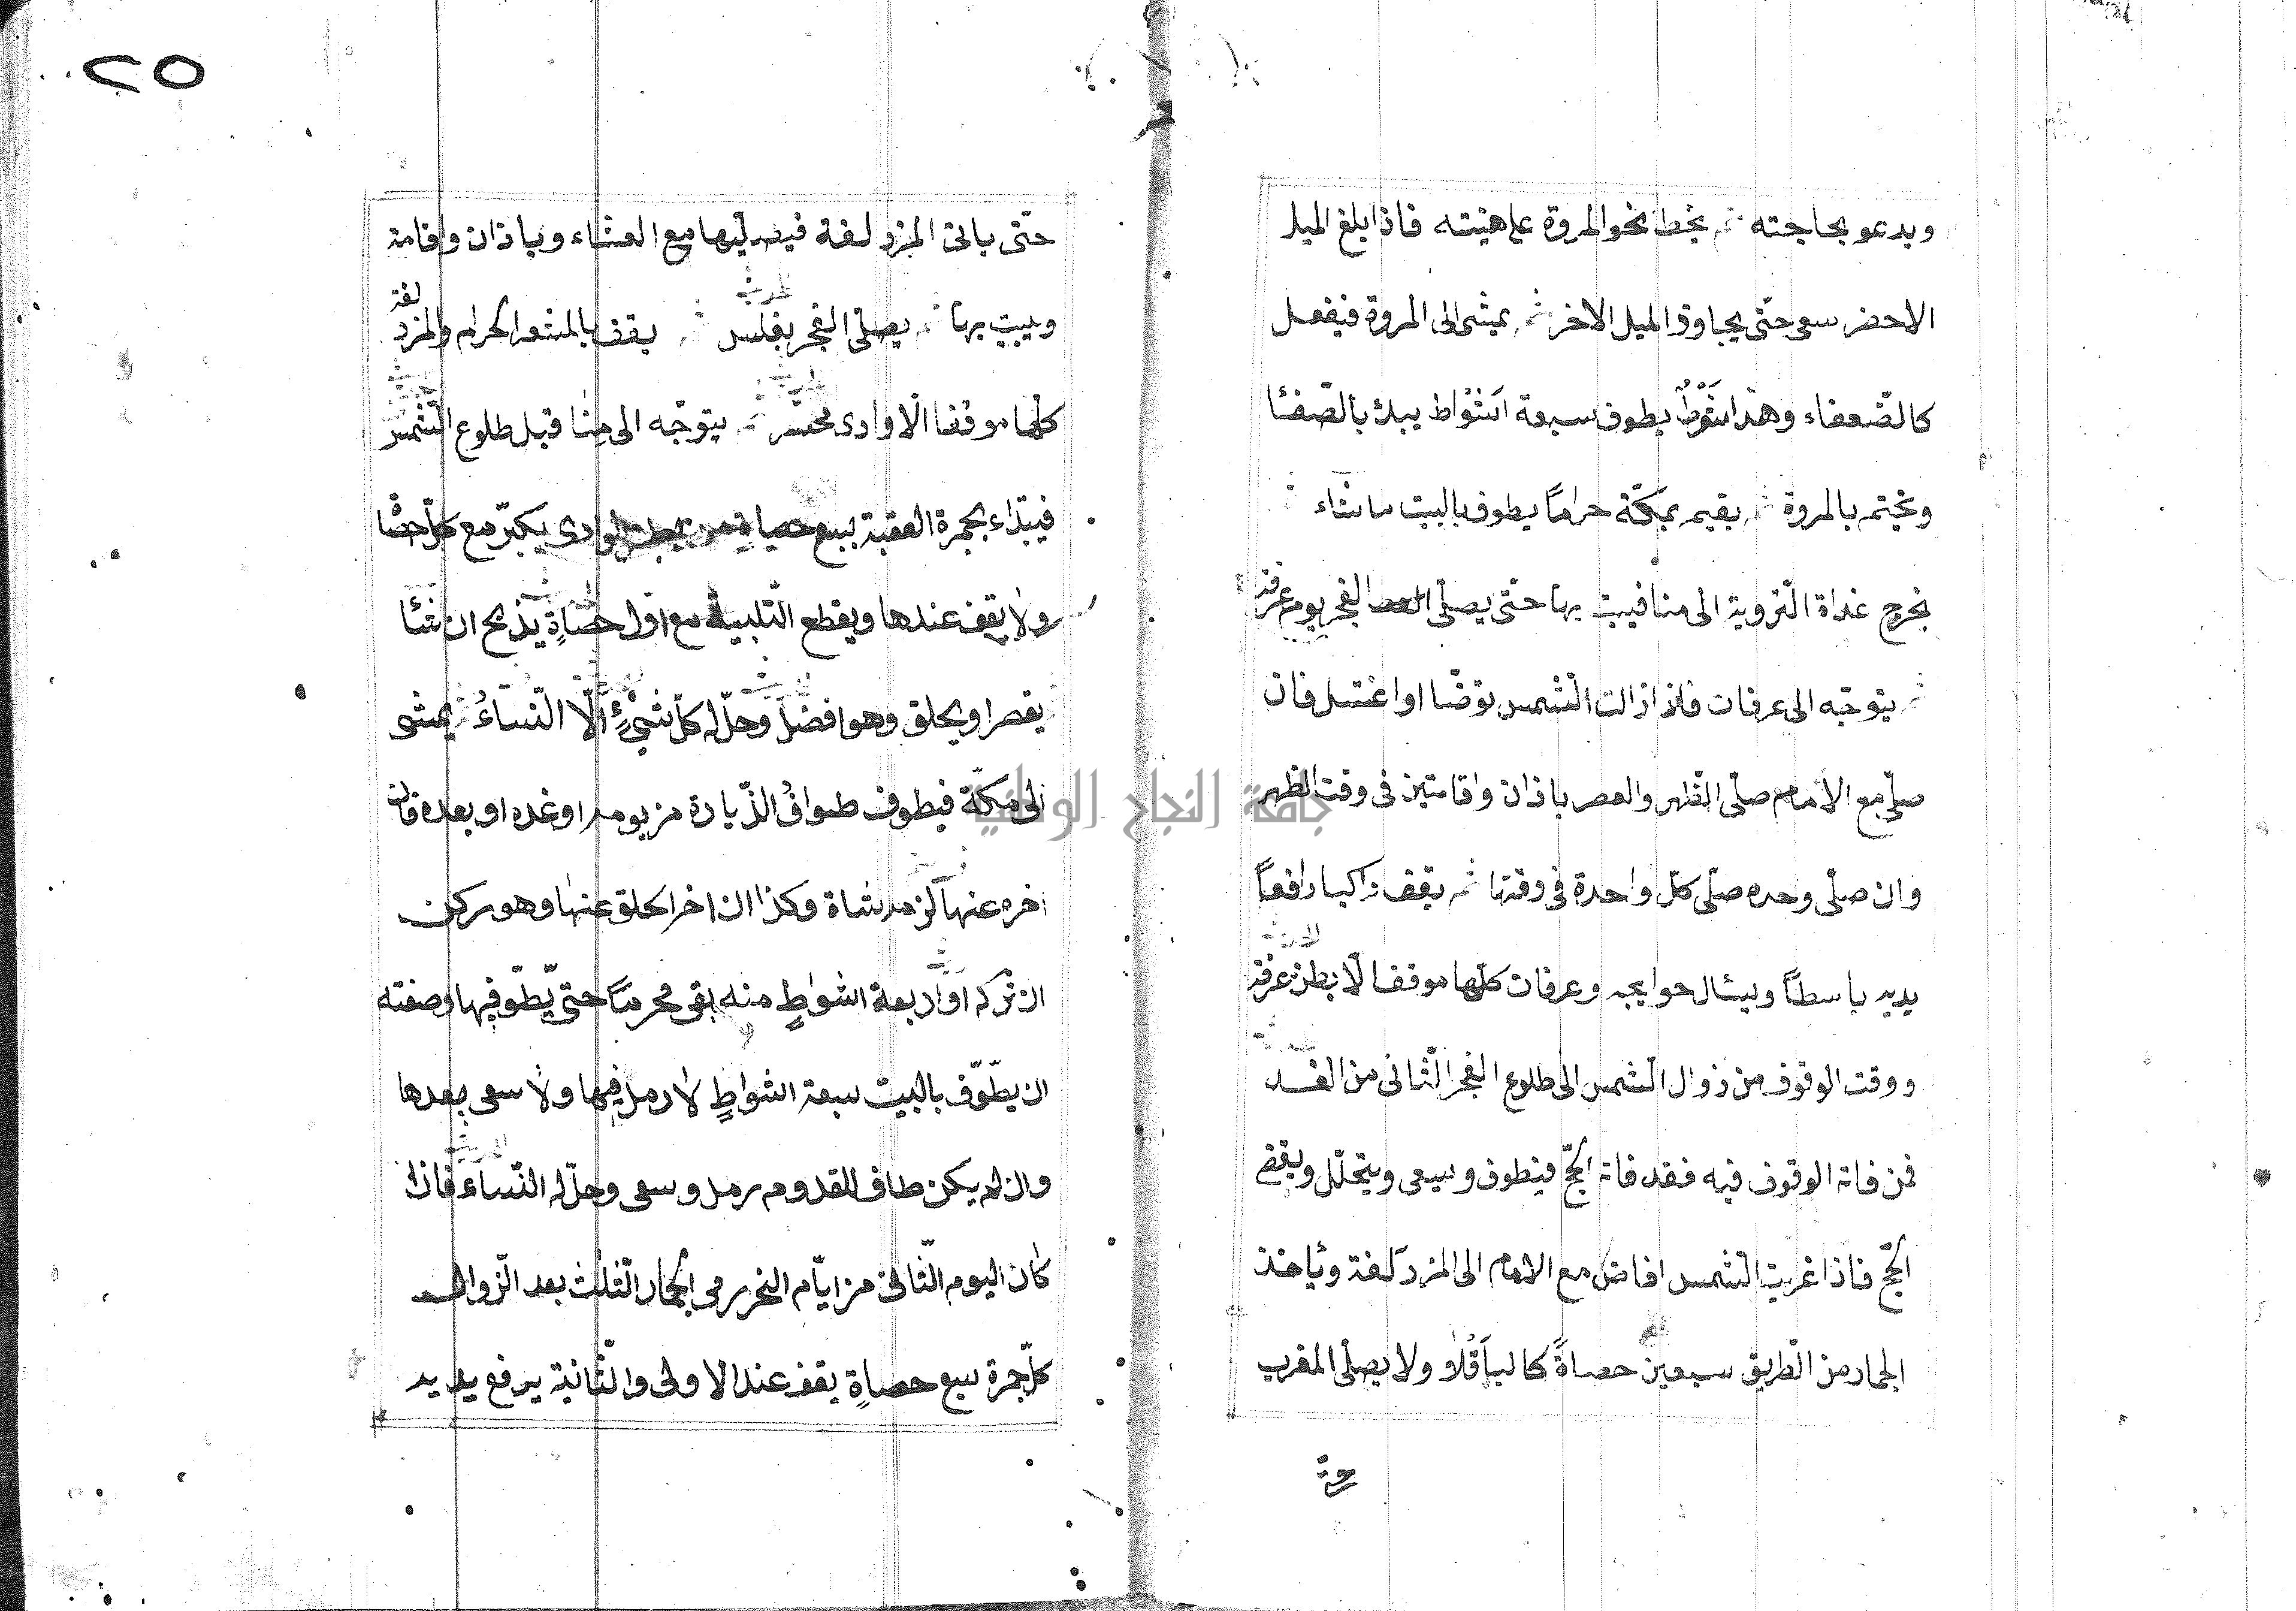 ويدعو بحاجته ثم يخط نحو المروة على هيئته فاذا بلغ الميل
الاحضر سعى حتّى يجاوز الميل الاخر ثم يمشى الى المروة فيفعل
كالصّعفاء وهذا شَوْطٌ يطوف سبعة اَشْوَاط يبدأ بالصّفئا
ويختم بالمروة ثم يقيم بمكّة حرامًا يطوف بالبيت ما شاء ثم
يخرج غداة التّروية الى منا فيبت بها حتّى يصلّى الفجر يوم عرفة
ثم يتوجّه الى عرفات فاذا زالت الشّمس توضّا او اغتسل فان
صلّى مع الامام صلّى الظّهر والعصر باذان واقامتين فى وقت الظهر
وان صلّى وحده صلّى كلّ واحدة فى وقتها ثم يقف راكبا رافعاً
يديه باسطاً ويسئال حوايجه وعرفات كلّها موقفا الّا بطن عرفة
ووقت الوقوف من زوال الشّمس الى طلوع الفجر الثّانى من الغد
فمن فاتة الوقوف فيه فقد فاتة الحجّ فيطوف وسيعى ويتحلّل ويقضى
الحجّ فاذا غربت الشّمس افاض مع الامام الى المزدَلفة ويأخذ
الجمار من الطّريق سبعين حصاةً كالباَقْلاو ولا يصلّى المغرب
حتّى
٢٥
حتّى ياتى المزدلفة فيصلّيها مع العشاء وباذان واقامة
ويبيت بها ثم يصلّى الفجر بغلس ثم يقف بالمشعر الحرام والمزدلفة
كلّها موقفا الّا وادى محسّر ثم يتوجّه الى مِنٰا قبل طلوع الشّمس
فيبتداء بجمرة العقبة بسبع حصياةٍ من بطن الوادى يكبّر مع كلّ حصٰا
ولا يقف عندها ويقطع التّلبية مع اوّل حصٰاةٍ يذبح ان شئا
يقصر او يحلق وهو افضل وحلّ له كلّ شيْءٍ الّا النّساءُ ثم يمشى
الى مكّة فيطوف طواف الذّيارة من يومه او غده او بعده فان
اخره عنها لزمه شاة وكذا ان اخر الحلق عنها وهو ركن
ان تركه او اربعة اشواطٍ منه بقى محرمًا حتىّ يطّوفيها وصفته
ان يطّوّف بالبيت سبعة اشواطٍ لا رمل فيها ولا سعى بعدها
وان لم يكن طاف للقدوم رمل وسعى وحلّ له النّساء فاذا
كان اليوم الثّانى من ايّام النحر رمى الجمار الثّلث بعد الزّوال
كلّ جمرة سبع حصاةٍ يقف عند الاولى والثّانية يرفع يديه
جامعة النجاح الوطنية